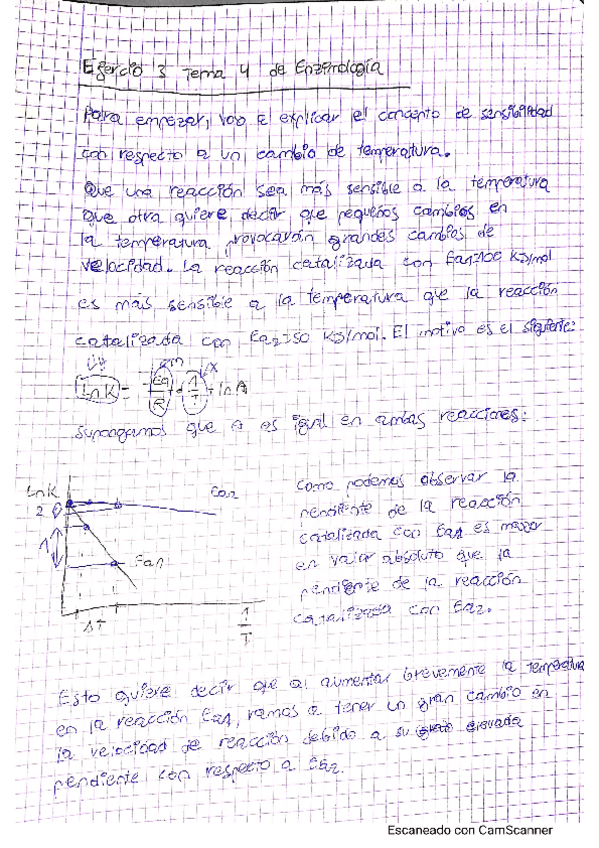 Ejercio 3 Tema 4 de Enzimología
Para empezar, voy a explicar el concepto de sensibilidad
con respecto a un cambio de temperatura.
Que una reacción sea más sensible a la temperatura
que otra quiere decir que pequeños cambios en
la temperatura provocarán grandes cambios de
velocidad. La reacción catalizada con Ea1=100 KJ/mol
es más sensible a la temperatura que la reacción
catalizada con Ea2=50 KJ/mol. El motivo es el siguiente:
m
x
Ln K = - Ea/R · 1/T + ln A
Supongamos que A es igual en ambas reacciones:
Ln K
Ea2
2
1
Ea1
ΔT
1/T
Como podemos observar la
pendiente de la reacción
catalizada con Ea1 es mayor
en valor absoluto que la
pendiente de la reacción
catalizada con Ea2.
Esto quiere decir que al aumentar brevemente la temperatura
en la reacción Ea1, vamos a tener un gran cambio en
la velocidad de reacción debido a su elevada
pendiente con respecto a Ea2.
Escaneado con CamScanner